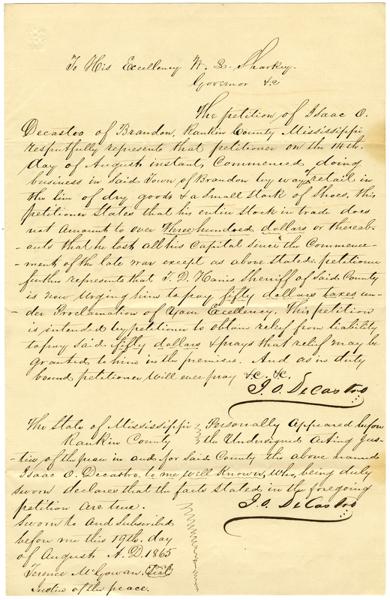 To His Excellency W. L. Sharkey
Governor &c
The petition of Isaac O.
Decastro of Brandon, Rankin County Mississippi
respectfully represents that petitioner on the 14th.
day of August instant, Commenced, doing
business in said Town of Brandon by way retail in
the line of dry goods & a small stock of shoes, this
petitioner states that his entire stock in trade does
not amount to over Three hundred dollars or thereab-
outs that he lost all his Capital since the Commence-
ment of the late war except as above stated. petitioner
further represents that Harris Sheriff of said County
is now urging him to pay fifty dollars taxes un-
der Proclamation of Your Excellency. This petition
is intended by petitioner to obtain relief from liability
to pay said fifty dollars & prays that relief may be
granted to him in the premises. And as in duty
bound petitioner will ever pray &c. &c.
I. O. DeCastro
The State of Mississippi
Rankin County
Personally Appeared before
the Undersigned Acting Jus-
tice of the peace in and for said County the above named
Isaac O. Decastro, to me well Known, Who, being duly
sworn declares that the facts stated in the foregoing
petition are true.
Sworn to and Subscribed
before me this 19th. day
of August A.D. 1865
Terence McGowan Seal
Justice of the peace.
I. O. DeCastro